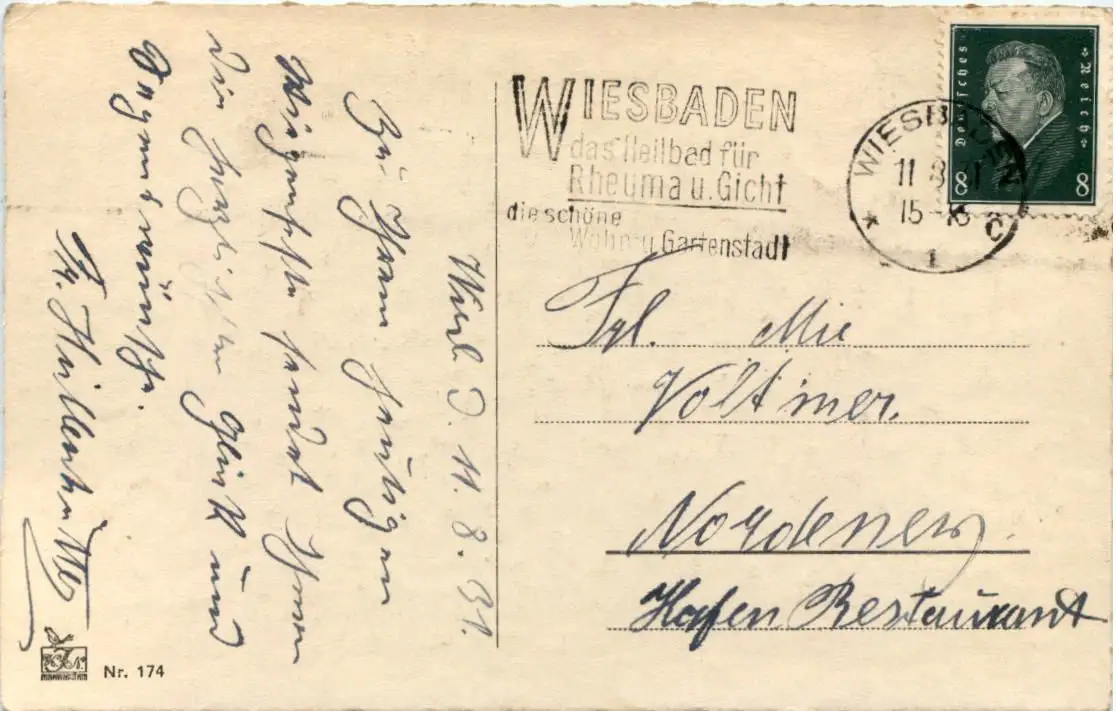 Wiesb. d. 11. 8. 31.
Zu Ihrem heutigen
Wiegenfeste sendet Ihnen
die herzlichsten Glück und
Segenswünsche.
Fr.
WIESBADEN
das Heilbad für
Rheuma u. Gicht
die schöne
Wohn- u. Gartenstadt
WIESBADEN
11 8 31
15-16
* 1 c
Deutsches Reich
8 8
Frl. Mie
Voltmer.
Norderney.
Hafen Restaurant
Nr. 174